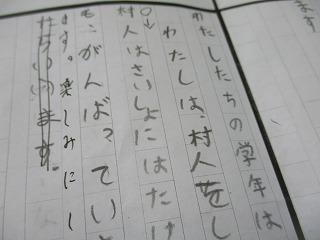 ます
わたしたちの学年は
わたしは、村人をし
村人はさいしょにはたけ
も、がんばってい
ます。楽しみにし
ます。